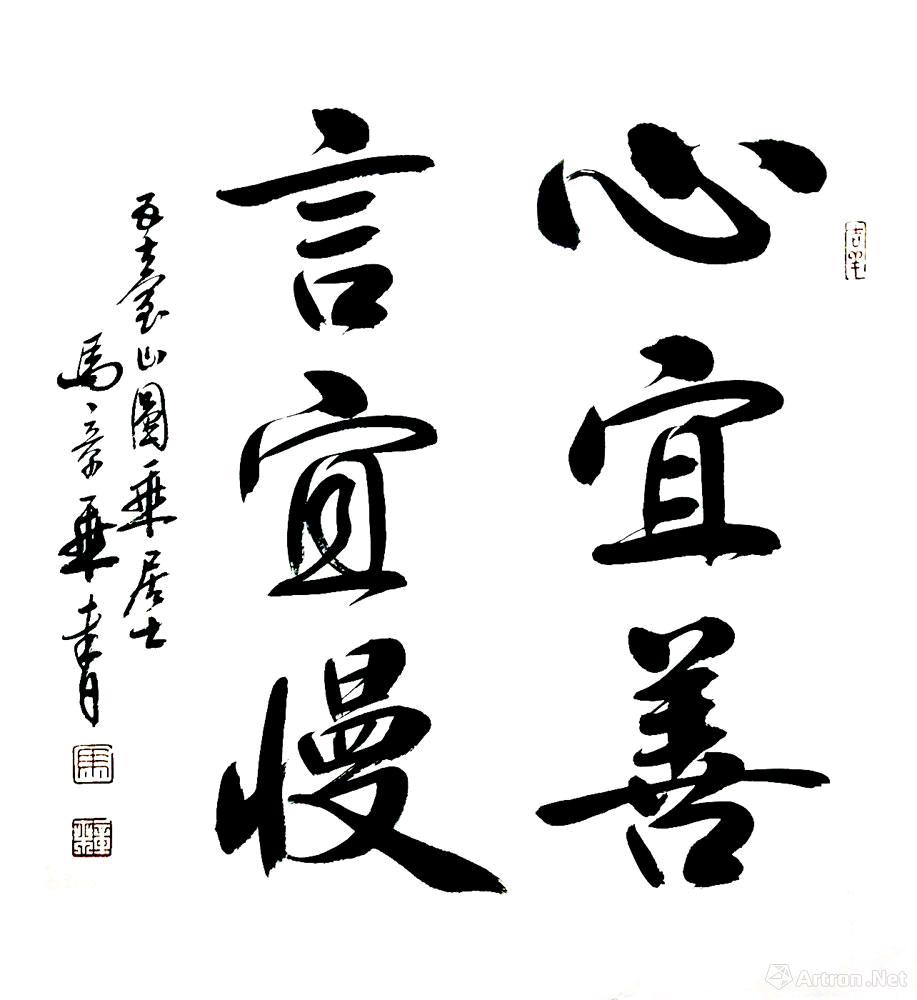 心宜善
言宜慢
五臺山圓乘居士
馬章乘書
Artron.Net